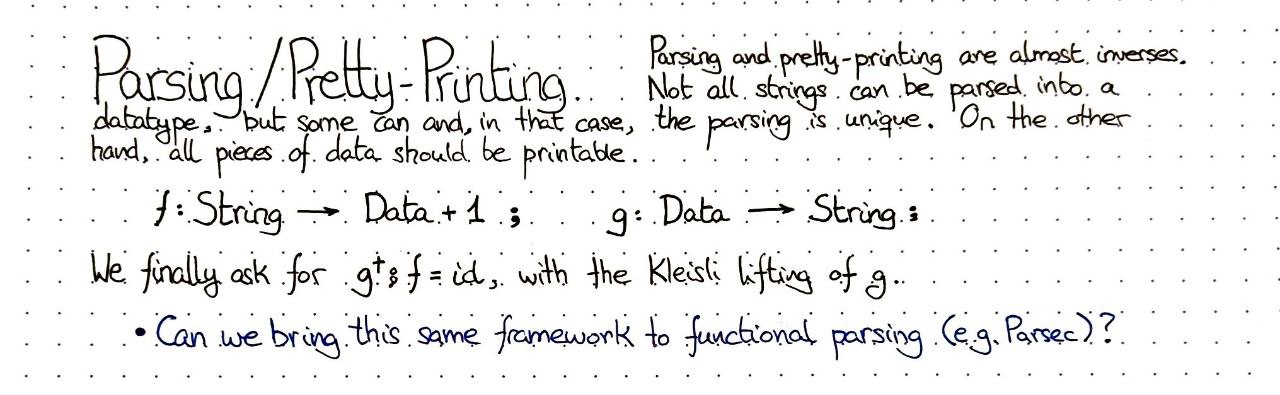 Parsing/Pretty-Printing. Parsing and pretty-printing are almost inverses.
Not all strings can be parsed into a
datatype, but some can and, in that case, the parsing is unique. On the other
hand, all pieces of data should be printable.
f: String → Data + 1 ; g: Data → String ;
We finally ask for g† ⨾ f = id, with the Kleisli lifting of g.
• Can we bring this same framework to functional parsing (e.g. Parsec)?